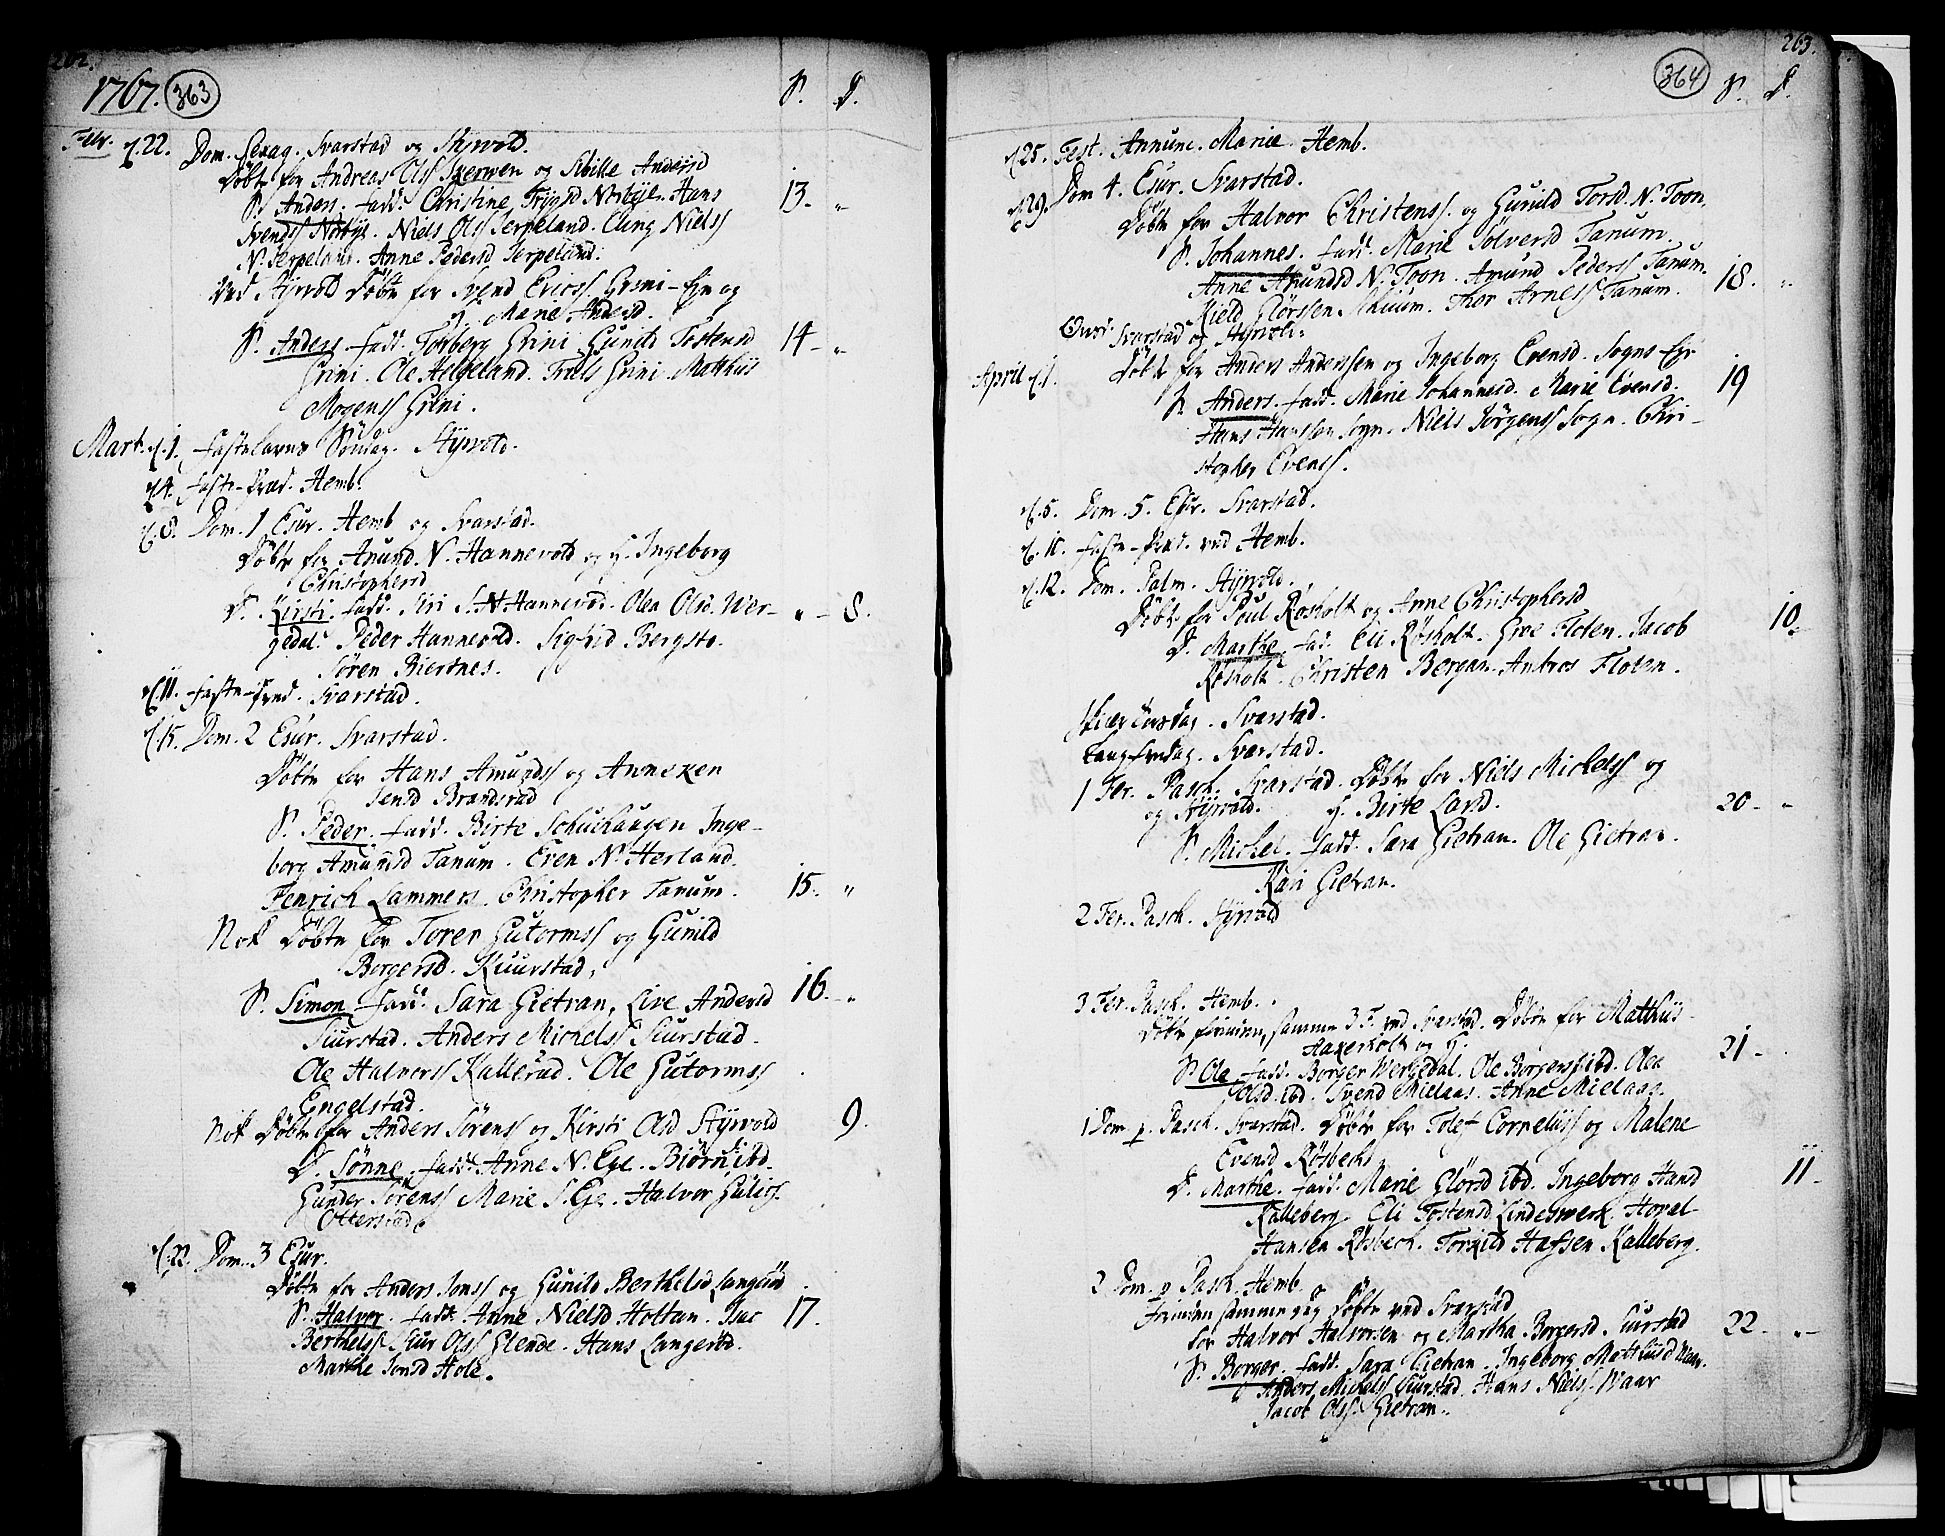 262.
1767. 363 S. D.
Febr. d. 22. Dom. Sexag. Svarstad og Styrvold.
Døbte for Andreas Olss Skerven og Sibille Andersd
S. Anders. fadd. Christine Nordbye. Hans 13. „
Svends Norbye. Niels Olss Jerpeland. Niels
N. Jerpeland. Anne Pedersd Jerpeland.
Ved Styrvold døbte for Svend Ericss Grini-Eje og
H. Marie Andersd.
S. Anders. fadd. Torberg Grini. Gunild Tostensd 14 - „
Grini. Ole Helgeland. Troels Grini. Matthiis
Mogenss Grini.
Mart. d. 1. Fastelavns Søndag. Styrvold.
d. 4. Faste-Præd. Hemb.
d. 8. Dom. 1 Esur. Hemb og Svarstad.
Døbte for Amund N. Hannevold og H. Ingeborg
Christophersd
D. Kirsti. fadd. Siri S. N. Hannevold. Olea Olsd. Wer- „ - 8.
gedal. Peder Hannevold. Sigrid Bergsto.
Søren Biertnes.
d. 11. Faste-Præd. Svarstad.
d. 15. Dom. 2 Esur. Svarstad.
Døbte for Hans Amundss og Anneken
Jensd Brandsrud
S. Peder. fadd. Birte Schuehaugen Inge-
borg Amundsd Tanum. Even N. Herland.
Henrich Lammers. Christopher Tanum. 15. „
Nok døbte for Torer Gutormss og Gunild
Borgersd. Kuurstad,
S. Simon fadd. Sara Gietran, Live Andersd 16. - „
Suurstad. Anders Michelss Suurstad.
Ole Halvorss Kallerud. Ole Gutormss
Engelstad.
Nok døbte for Anders Sørenss og Kirsti Olsd Styrvold 9.
D. Sønne. fadd. Anne N. Eje. Biørn ibd.
Gunder Sørenss Marie S. Eje. Halvor Gulics.
Otterstad
d. 22. Dom. 3 Esur.
Døbte for Anders Jonss og Gunild Berthelsd Langerud
S. Halvor. fadd. Anne Nielsd Holtan. Isac 17.
Berthelss. Siur Olss Elende. Hans Langerød.
Marthe Jonsd Hole.
263.
364 S. D.
d. 25. Fest. Annunc. Mariæ. Hemb.
d. 29. Dom 4. Esur. Svarstad.
Døbte for Halvor Christenss. og Gunild Torsd. N. Toon,
S. Johannes. fadd. Marie Sølversd Tanum
Anne Amundsd N. Toon. Amund Pederss Tanum. 18. „
Kield Glørsen Thor Arness Tanum.
Svarstad og Styrvold.
April d. 1. Døbte for Anders Anderssen og Ingeborg Evensd. Sogns-Ejr
S. Anders. fadd. Marie Johannesd. Marie Evensd. 19
Hans Hanssen Sogn. Niels Jørgenss Sogn. Chri-
stopher Evenss.
d. 5. Dom. 5. Esur. Svarstad.
d. 10. Faste-Præd. ved Hemb.
d. 12. Dom. Palm. Styrvold.
Døbte for Poul Røsholt og Anne Christophersd 10. -
D. Marthe. fad. Eli Røsholt. Gure Floten. Jacob
Røsholt. Christen Bergan. Ambros Floten.
Skiær Torsdag. Svarstad.
Langfredag. Svarstad.
1 Fer. Pasch. Svarstad. Døbte for Niels Michelss og
og Styrvold. H. Birte Land. 20 - „
S. Michel. fadd. Sara Gietran. Ole Gietran.
Kari Gietran.
2 Fer. Pasch. Styrvold
3 Fer. Pasch. Hemb.
Døbte samme 3 F. ved Svarstad. Døbte for Matthiis
Aakerholt og H. 21 -
S. Ole fadd. Borger Wergedal. Ole Borgerss ibd. Olea
Olsd. ibd. Svend Mielaas. Anne Mielaas.
1 Dom p. Pasch. Svarstad. Døbte for Tolef Corneliuss og Malene
Evensd Røsbech
D. Marthe. fadd. Marie Glørsd ibd. Ingeborg Hansd 11 -
Kalleberg. Eli Tostensd Lindeswerk. Hovel
Hansen Røsbech. Torkild Hafsen Kalleberg.
2 Dom. p Pasch. Hemb.
samme dag Døbte ved Svarstad
for Halvor Halvorsen og Martha Borgersd. Suurstad 22 - „ -
S. Borger. fadd. Sara Gietran. Ingeborg Matthiisd Waar.
Anders Michelss Suurstad. Hans Nielss. Waar
Jacob Olss. Gietran.